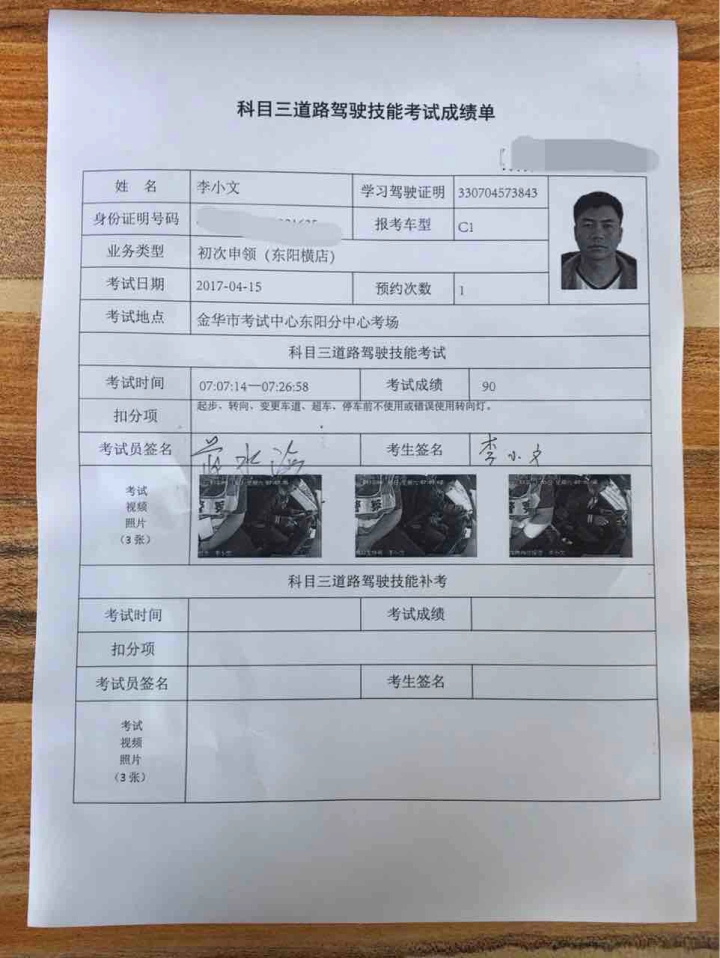 科目三道路驾驶技能考试成绩单
姓 名 李小文 学习驾驶证明 330704573843
身份证明号码 报考车型 C1
业务类型 初次申领（东阳横店）
考试日期 2017-04-15 预约次数 1
考试地点 金华市考试中心东阳分中心考场
科目三道路驾驶技能考试
考试时间 07:07:14—07:26:58 考试成绩 90
扣分项 起步、转向、变更车道、超车、停车前不使用或错误使用转向灯。
考试员签名 考生签名 李小文
考试
视频
照片
（3 张）
李小文 李小文 李小文
科目三道路驾驶技能补考
考试时间 考试成绩
扣分项
考试员签名 考生签名
考试
视频
照片
（3 张）